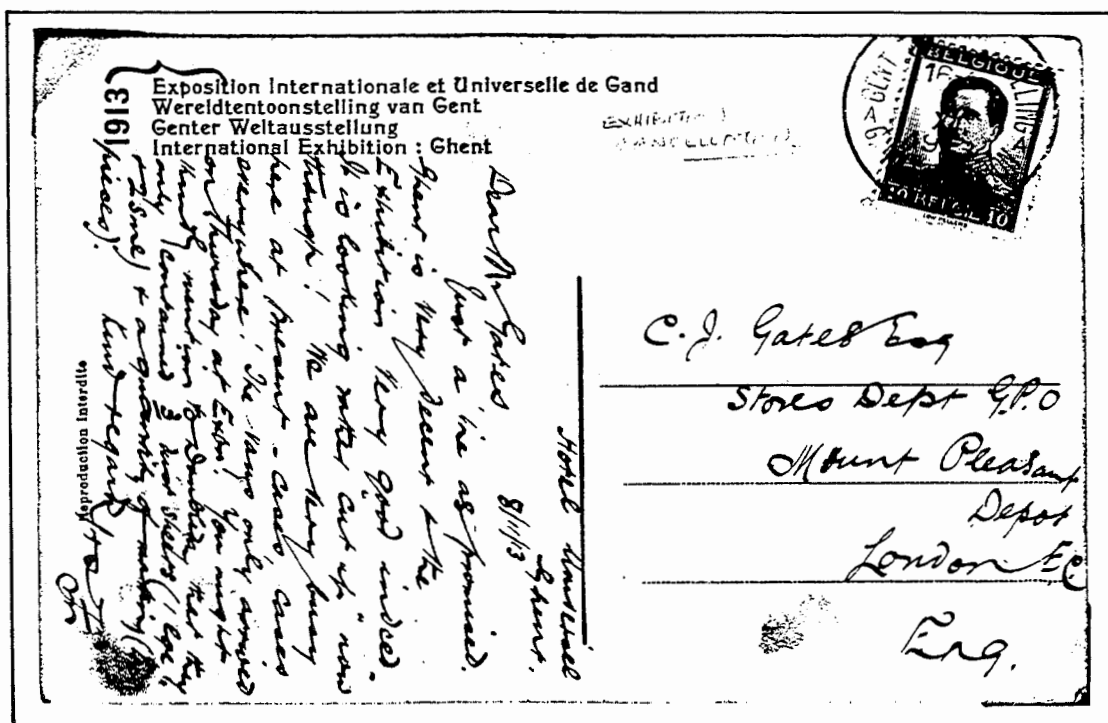 1913
Exposition Internationale et Universelle de Gand
Wereldtentoonstelling van Gent
Genter Weltausstellung
International Exhibition : Ghent
EXHIBITION
CANCELLATION
GENT
BELGIQUE
BELGIË 10
Hotel Universell
Ghent.
8/11/13
Dear Mr Gates
Just a line as promised.
Ghent is very decent & the
Exhibition very good indeed.
It is looking rather "cut up" now
though! We are very busy
here at present - cases cases
everywhere! The vans only arrived
on Thursday at Expo. You might
mention to that they
only contained 3 dust sheets (1 lge
& 2 sme) & a quantity of matting (
pieces). Kind regards to
Reproduction interdite
C. J. Gates Esq
Stores Dept G.P.O
Mount Pleasant
Depot
London E.C.
Eng.